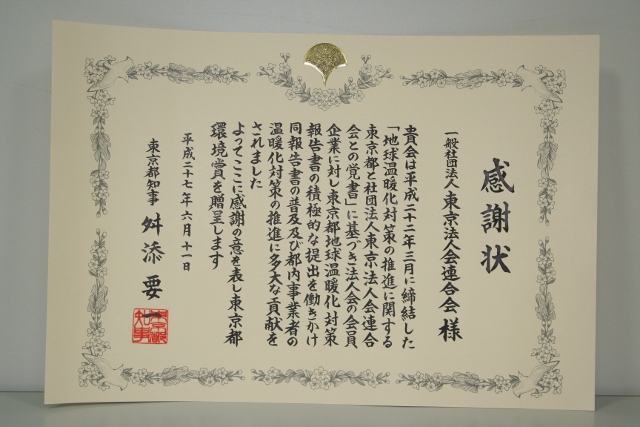 感謝状
一般社団法人 東京法人会連合会 様
貴会は平成二十二年三月に締結した
「地球温暖化対策の推進に関する
東京都と社団法人東京法人会連合
会との覚書」に基づき法人会の会員
企業に対し東京都地球温暖化対策
報告書の積極的な提出を働きかけ
同報告書の普及及び都内事業者の
温暖化対策の推進に多大な貢献を
されました
よってここに感謝の意を表し東京都
環境賞を贈呈します
平成二十七年六月十一日
東京都知事 舛添要一